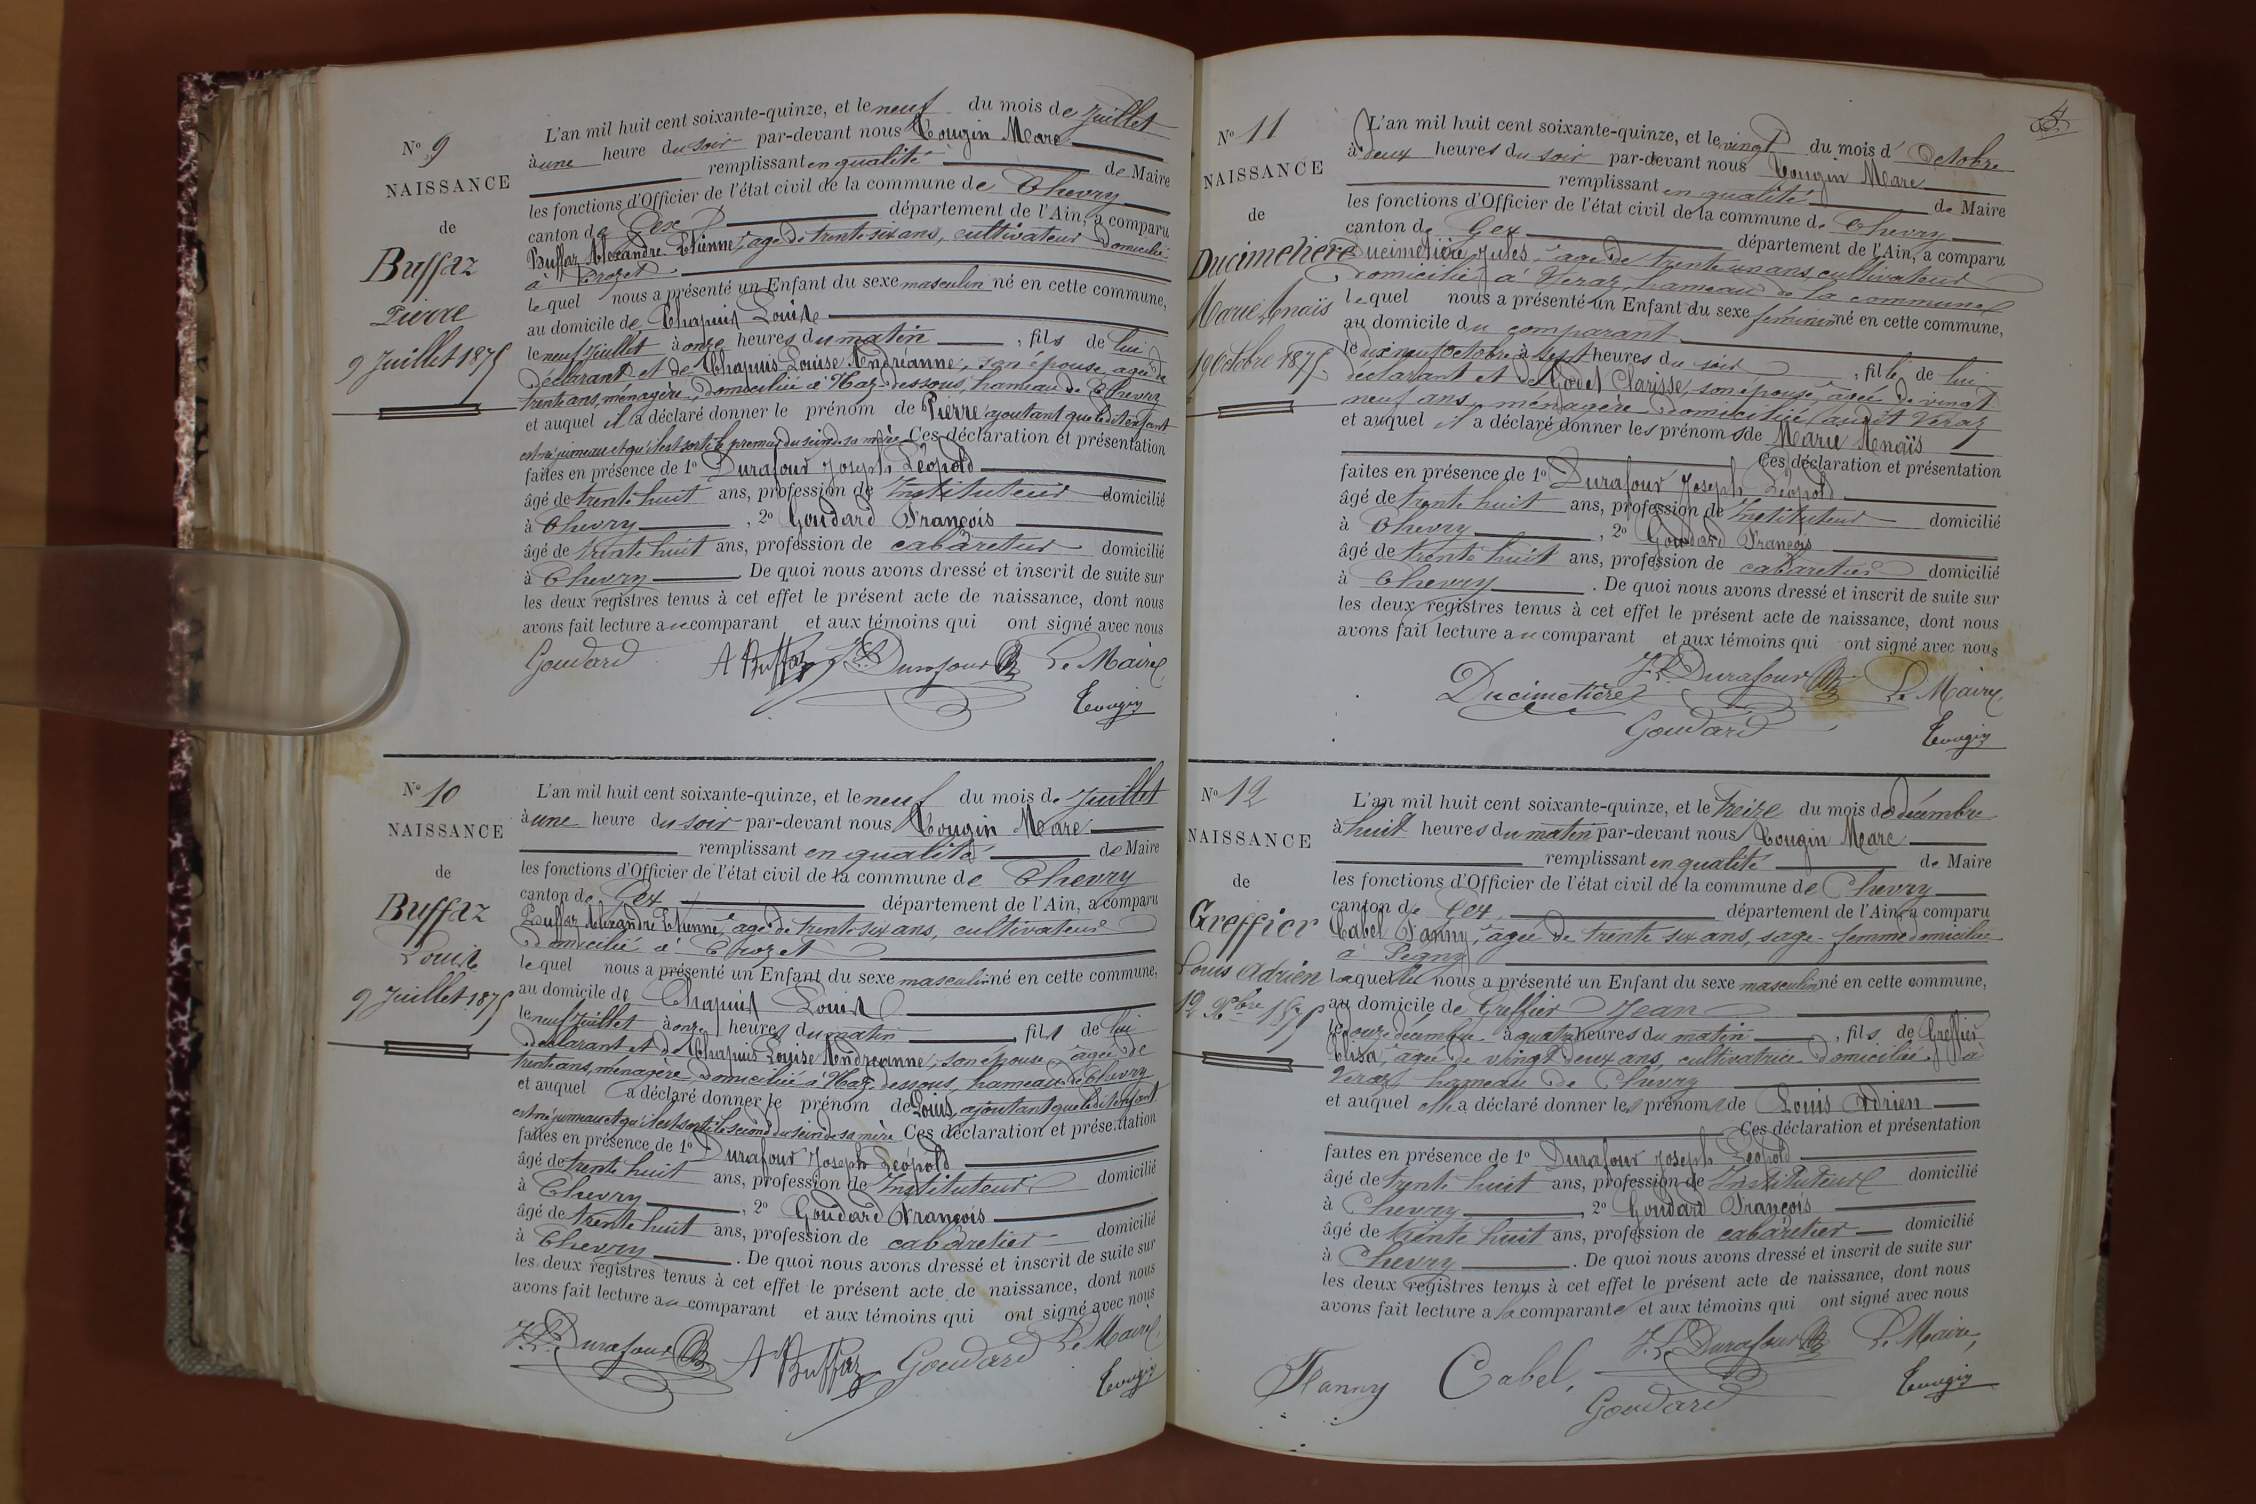 N° 9
NAISSANCE
de
Buffaz
Pierre
9 Juillet 1875
L'an mil huit cent soixante-quinze, et le neuf du mois de Juillet
à une heure du soir par-devant nous Tougin Marc
remplissant en qualité de Maire
les fonctions d'Officier de l'état civil de la commune de Chevry
canton de Gex département de l'Ain, a comparu
Buffaz Alexandre Etienne, âgé de trente six ans, cultivateur domicilié
à Crozet
lequel nous a présenté un Enfant du sexe masculin né en cette commune,
au domicile de Chapuis Louis
le neuf Juillet à onze heures du matin, fils de lui
déclarant et de Chapuis Louise Andréanne, son épouse, âgée de
trente ans, ménagère, domiciliée à Naz-dessous, hameau de Chevry
et auquel il a déclaré donner le prénom de Pierre ajoutant que le dit enfant
est né jumeau et qu'il est sorti le premier du sein de sa mère Ces déclaration et présentation
faites en présence de 1° Durafour Joseph Léopold
âgé de trente huit ans, profession de Instituteur domicilié
à Chevry, 2° Goudard François
âgé de trente huit ans, profession de cabaretier domicilié
à Chevry. De quoi nous avons dressé et inscrit de suite sur
les deux registres tenus à cet effet le présent acte de naissance, dont nous
avons fait lecture au comparant et aux témoins qui ont signé avec nous
Goudard A Buffaz J. L. Durafour Le Maire
Tougin
N° 10
NAISSANCE
de
Buffaz
Louis
9 Juillet 1875
L'an mil huit cent soixante-quinze, et le neuf du mois de Juillet
à une heure du soir par-devant nous Tougin Marc
remplissant en qualité de Maire
les fonctions d'Officier de l'état civil de la commune de Chevry
canton de Gex département de l'Ain, a comparu
Buffaz Alexandre Etienne, âgé de trente six ans, cultivateur
domicilié à Crozet
lequel nous a présenté un Enfant du sexe masculin né en cette commune,
au domicile de Chapuis Louis
le neuf Juillet à onze heures du matin, fils de lui
déclarant et de Chapuis Louise Andréanne, son épouse, âgée de
trente ans, ménagère, domiciliée à Naz-dessous, hameau de Chevry
et auquel a déclaré donner le prénom de Louis, ajoutant que le dit enfant
est né jumeau et qu'il est sorti le second du sein de sa mère Ces déclaration et présentation
faites en présence de 1° Durafour Joseph Léopold
âgé de trente huit ans, profession de Instituteur domicilié
à Chevry, 2° Goudard François
âgé de trente huit ans, profession de cabaretier domicilié
à Chevry. De quoi nous avons dressé et inscrit de suite sur
les deux registres tenus à cet effet le présent acte de naissance, dont nous
avons fait lecture au comparant et aux témoins qui ont signé avec nous
J. L. Durafour A Buffaz Goudard Le Maire
Tougin
N° 11
NAISSANCE
de
Ducimetière
Marie Anaïs
19 Octobre 1875
L'an mil huit cent soixante-quinze, et le vingt du mois d'Octobre
à deux heures du soir par-devant nous Tougin Marc
remplissant en qualité de Maire
les fonctions d'Officier de l'état civil de la commune de Chevry
canton de Gex département de l'Ain, a comparu
Ducimetière Jules, âgé de trente un ans, cultivateur
domicilié à Véraz, hameau de la commune
lequel nous a présenté un Enfant du sexe féminin né en cette commune,
au domicile du comparant
le dix neuf octobre à sept heures du soir, fille de lui
déclarant et de Godet Clarisse, son épouse, âgée de vingt
neuf ans, ménagère domiciliée audit Véraz
et auquel il a déclaré donner les prénoms de Marie Anaïs
Ces déclaration et présentation
faites en présence de 1° Durafour Joseph Léopold
âgé de trente huit ans, profession de Instituteur domicilié
à Chevry, 2° Goudard François
âgé de trente huit ans, profession de cabaretier domicilié
à Chevry. De quoi nous avons dressé et inscrit de suite sur
les deux registres tenus à cet effet le présent acte de naissance, dont nous
avons fait lecture au comparant et aux témoins qui ont signé avec nous
Ducimetière J. L. Durafour Le Maire
Goudard Tougin
N° 12
NAISSANCE
de
Greffier
Louis Adrien
12 Xbre 1875
L'an mil huit cent soixante-quinze, et le treize du mois de décembre
à huit heures du matin par-devant nous Tougin Marc
remplissant en qualité de Maire
les fonctions d'Officier de l'état civil de la commune de Chevry
canton de Gex département de l'Ain, a comparu
Cabel Fanny, âgée de trente six ans, sage-femme domiciliée
à Segny
laquelle nous a présenté un Enfant du sexe masculin né en cette commune,
au domicile de Greffier Jean
le douze décembre à quatre heures du matin, fils de Greffier
Elisa, âgée de vingt deux ans, cultivatrice domiciliée à
Véraz hameau de Chevry
et auquel elle a déclaré donner les prénoms de Louis Adrien
Ces déclaration et présentation
faites en présence de 1° Durafour Joseph Léopold
âgé de trente huit ans, profession de Instituteur domicilié
à Chevry, 2° Goudard François
âgé de trente huit ans, profession de cabaretier domicilié
à Chevry. De quoi nous avons dressé et inscrit de suite sur
les deux registres tenus à cet effet le présent acte de naissance, dont nous
avons fait lecture a la comparante et aux témoins qui ont signé avec nous
Fanny Cabel, J. L. Durafour Le Maire,
Goudard Tougin